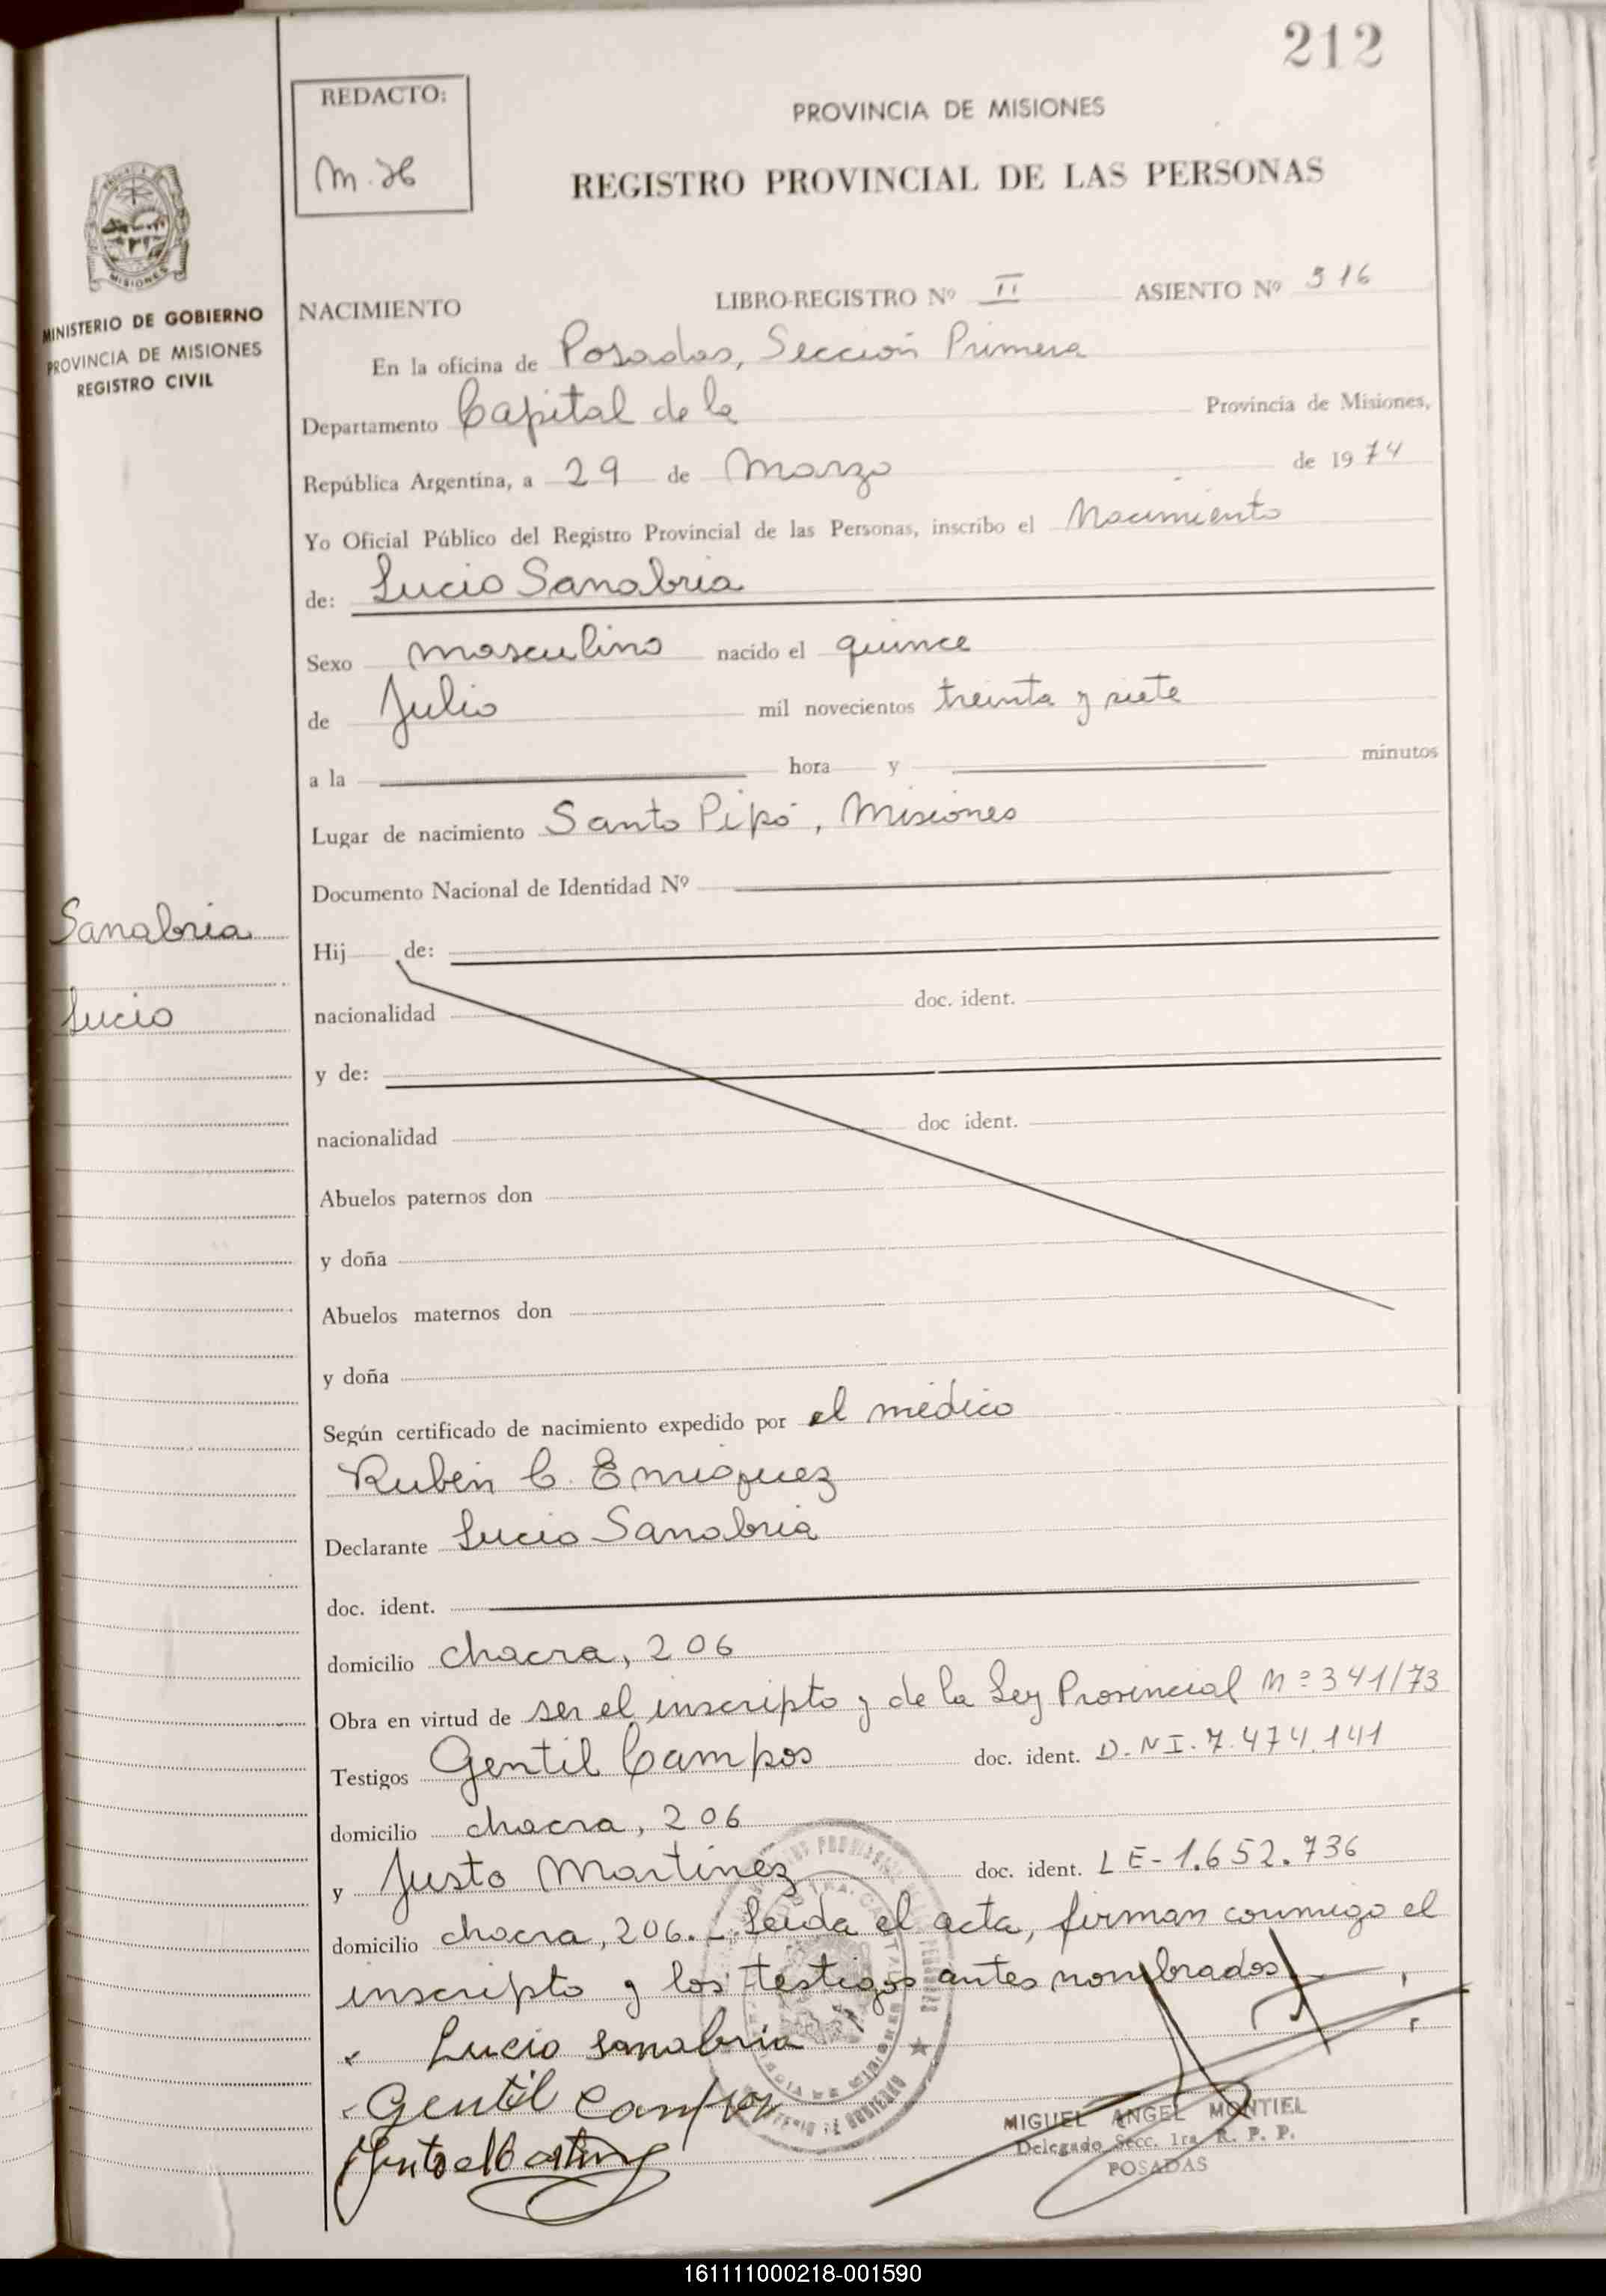 212
REDACTO:
PROVINCIA DE MISIONES
REGISTRO PROVINCIAL DE LAS PERSONAS
MISIONES
MINISTERIO DE GOBIERNO
PROVINCIA DE MISIONES
REGISTRO CIVIL
NACIMIENTO LIBRO-REGISTRO Nº II ASIENTO Nº 316
En la oficina de Posadas, Sección Primera
Departamento Capital de la Provincia de Misiones,
República Argentina, a 29 de Marzo de 1974
Yo Oficial Público del Registro Provincial de las Personas, inscribo el Nacimiento
de: Lucio Sanabria
Sexo masculino nacido el quince
de Julio mil novecientos treinta y siete
a la hora y minutos
Lugar de nacimiento Santo Pipó, Misiones
Documento Nacional de Identidad Nº
Sanabria
Lucio
Hij de:
nacionalidad doc. ident.
y de:
nacionalidad doc ident.
Abuelos paternos don
y doña
Abuelos maternos don
y doña
Según certificado de nacimiento expedido por el médico
Rubén C. Enriquez
Declarante Lucio Sanabria
doc. ident.
domicilio chacra, 206
Obra en virtud de ser el inscripto y de la Ley Provincial Nº 341/73
Testigos Gentil Campos doc. ident. D.N.I. 7.474.141
domicilio chacra, 206
y Justo Martinez doc. ident. L E - 1.652.736
domicilio chacra, 206. - Leida el acta, firman conmigo el
inscripto y los testigos antes nombrados
Lucio Sanabria
Gentil Campos
Justo Martinez
MIGUEL ANGEL MONTIEL
Delegado Secc. 1ra. R. P. P.
POSADAS
161111000218-001590